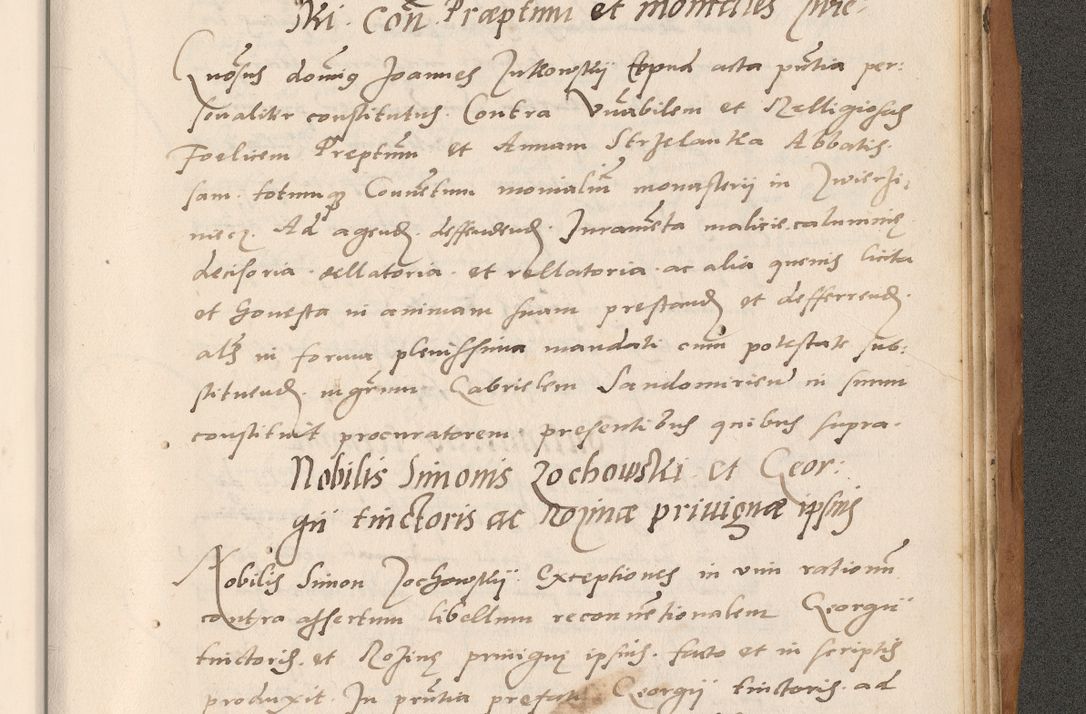 ski. Con. Præptum et moniales Zwie-
Gnosus domins Joannes Zukowskÿ apud acta pntia per:
sonaliter constitutus. Contra Vnabilem et Relligiosus
Foelicem Preptum et Annam Strzelanka Abbatis-
sam. totumq Conuetum monialiu monasterii in Zwierzi,
niecz. Ad agend. deffendend. Jurameta malicie. calumnię
decisoria. dellatoria. et rellatoria. ac alia queuis licita
et honesta in animam suam prestand et defferrend.
als in forma plenissima mandati cum potestate sub:
stituend. mgrum Gabrielem Sandomirien in suum
constituit procuratorem presentibus quibus supra.
Nobilis Simonis Zochowski. et Geor:
gii tinctoris ac Rozinæ priuignæ ipsius
Nobilis Simon Zochowskÿ. Exceptiones in vim rationum
contra assertum libellum reconuetionalem Georgii
tinctoris. et Rozinę priuignę ipsius. facto et in scriptis
produxit. In pntia prefati Georgÿ tinctoris. ad